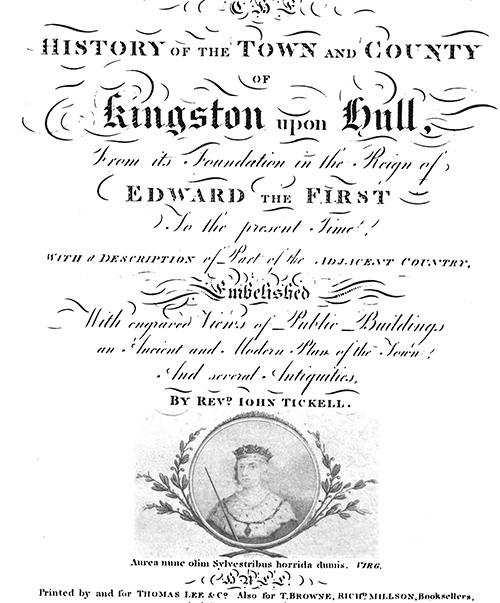 THE
HISTORY OF THE TOWN AND COUNTY
OF
Kingston upon Hull,
From its Foundation in the Reign of
EDWARD THE FIRST
To the present Time,
WITH a DESCRIPTION of Part of the ADJACENT COUNTRY.
Embelished
With engraved Views of Public Buildings
an Ancient and Modern Plan of the Town,
And several Antiquities,
BY REVD. IOHN TICKELL.
Aurea nunc olim Sylvestribus horrida dumis. VIRG.
HULL
Printed by and for THOMAS LEE & Co. Also for T. BROWNE, RICHd. MILLSON, Booksellers,